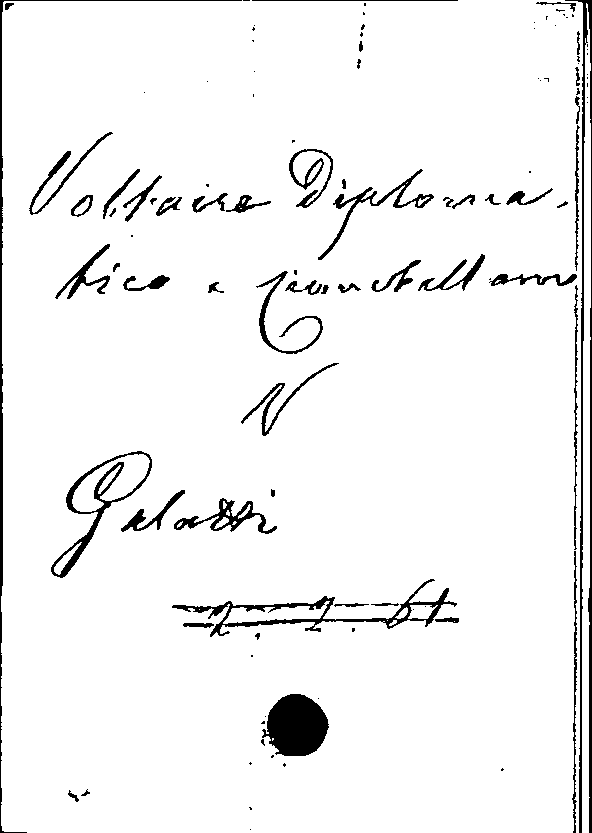 Voltaire Diploma-
tico e Ciambellano
V
Galatti
2.2.61